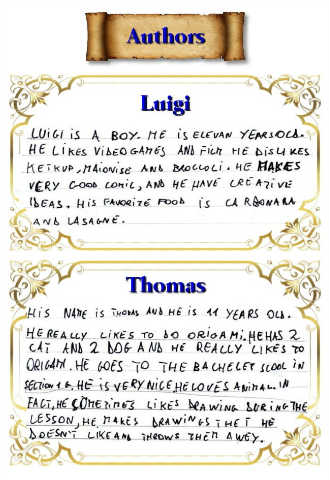 Authors
Luigi
LUIGI IS A BOY. HE IS ELEVAN YEARS OLD.
HE LIKES VIDEOGAMES AND FILM HE DISLIKES
KETKUP, MAIONISE AND BROCCOLI. HE MAKES
VERY GOOD COMIC, AND HE HAVE CREATIVE
IDEAS. HIS FAVORITE FOOD IS CARBONARA
AND LASAGNE.
Thomas
HIS NAME IS THOMAS AND HE IS 11 YEARS OLD.
HE REALLY LIKES TO DO ORIGAMI. HE HAS 2
CAT AND 2 DOG AND HE REALLY LIKES TO
ORIGAMI. HE GOES TO THE BACHELET SCOOL IN
SECTION 1G. HE IS VERY NICE, HE LOVES ANIMAL. IN
FACT, HE SOMETIMES LIKES DRAWING DURING THE
LESSON, HE MAKES DRAWINGS THET HE
DOESN'T LIKE AND THROWS THEM AWEY.